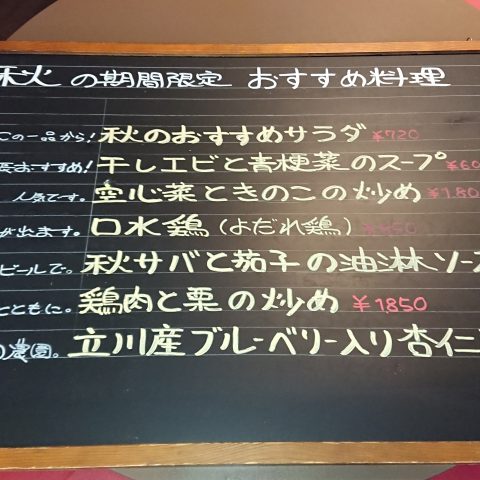 秋の期間限定 おすすめ料理
この一品から! 秋のおすすめサラダ ¥720
おすすめ! 干しエビと青梗菜のスープ ¥60
人気です。 空心菜ときのこの炒め ¥180
が出ます。 口水鶏(よだれ鶏)
ビールで。 秋サバと茄子の油淋ソース
とともに。 鶏肉と栗の炒め ¥1850
農園。 立川産ブルーベリー入り杏仁